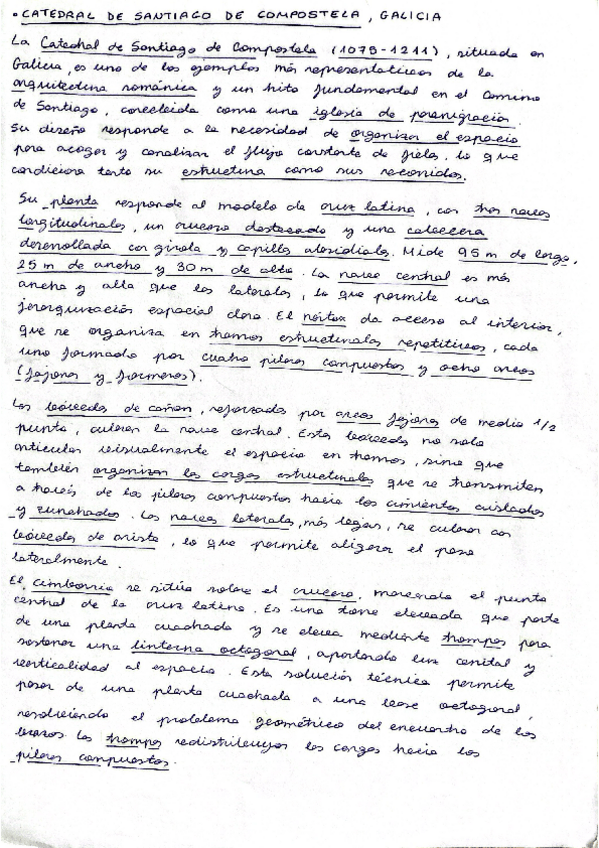 • CATEDRAL DE SANTIAGO DE COMPOSTELA, GALICIA
La Catedral de Santiago de Compostela (1075-1211), situada en
Galicia, es uno de los ejemplos más representativos de la
arquitectura románica y un hito fundamental en el Camino
de Santiago, concebida como una iglesia de peregrinación.
Su diseño responde a la necesidad de organizar el espacio
para acoger y canalizar el flujo constante de fieles, lo que
condiciona tanto su estructura como sus recorridos.
Su planta responde al modelo de cruz latina, con tres naves
longitudinales, un crucero destacado y una cabecera
desarrollada con girola y capillas absidiales. Mide 95 m de largo,
25 m de ancho y 30 m de alto. La nave central es más
ancha y alta que las laterales, lo que permite una
jerarquización espacial clara. El nártex da acceso al interior,
que se organiza en tramos estructurales repetitivos, cada
uno formado por cuatro pilares compuestos y ocho arcos
(fajones y formeros).
Las bóvedas de cañón, reforzadas por arcos fajones de medio 1/2
punto, cubren la nave central. Estas bóvedas no solo
articulan visualmente el espacio en tramos, sino que
también organizan las cargas estructurales que se transmiten
a través de los pilares compuestos hacia los cimientos aislados
y zunchados. Las naves laterales, más bajas, se cubren con
bóvedas de arista, lo que permite aligerar el peso
lateralmente.
El cimborrio se sitúa sobre el crucero, marcando el punto
central de la cruz latina. Es una torre elevada que parte
de una planta cuadrada y se eleva mediante trompas para
sostener una linterna octogonal, aportando luz cenital y
verticalidad al espacio. Esta solución técnica permite
pasar de una planta cuadrada a una base octogonal,
resolviendo el problema geométrico del encuentro de los
brazos. Las trompas redistribuyen las cargas hacia los
pilares compuestos.